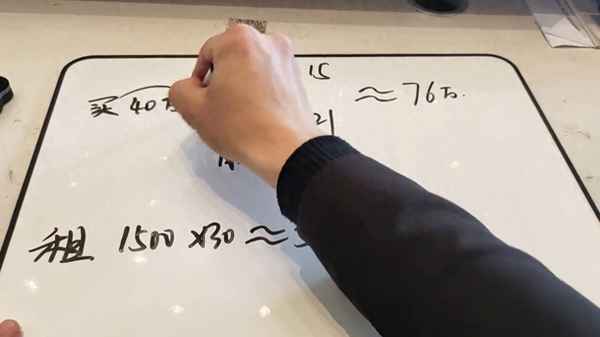 买 40万 15 ≈76万.
21
租 1500 x30≈